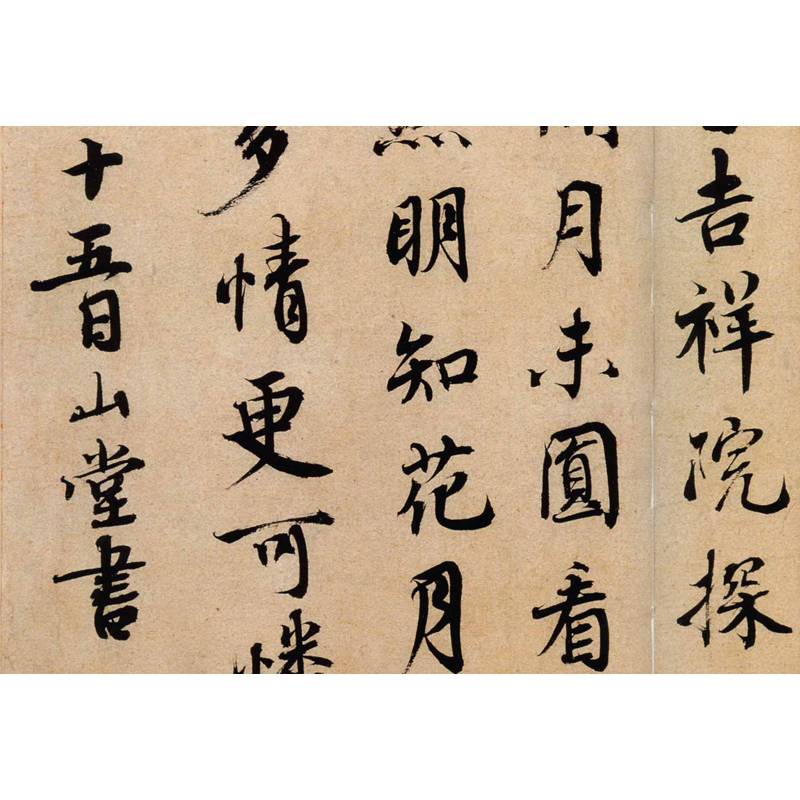 吉祥院探
月未圓看
明知花月
多情更可憐
十五日山堂書